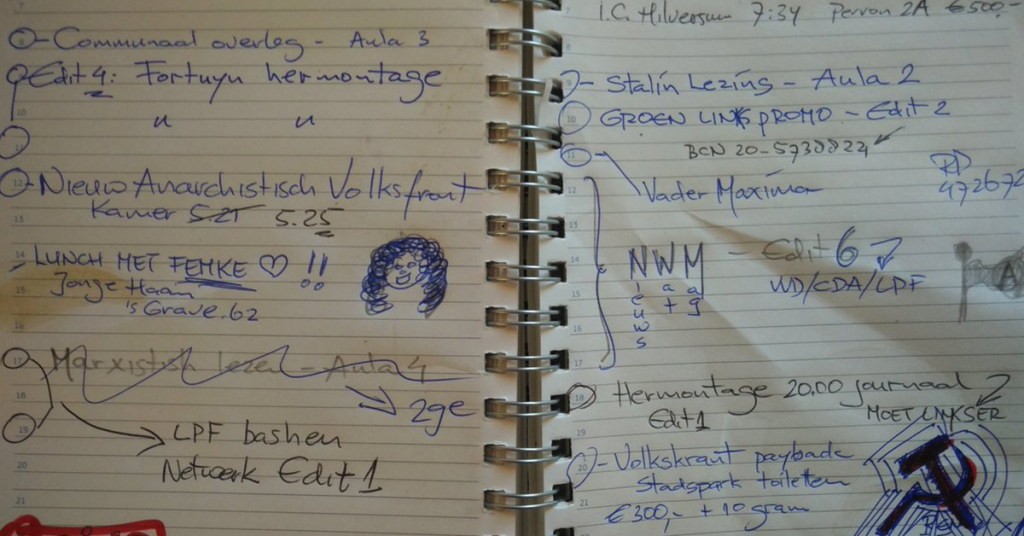 Communaal overleg - Aula 3
Edit 4: Fortuyn hermontage
" "
Nieuw Anarchistisch Volksfront
Kamer 5.21 5.25
LUNCH MET FEMKE ♡ !!
Jonge Haan
's Grave. 62
Marxistisch lezen - Aula 4
2ge
LPF bashen
Netwerk Edit 1
I.C. Hilversum 7:34 Perron 2A €500,-
Stalin Lezing - Aula 2
GROEN LINKS PROMO - Edit 2
BCN 20-5738822
Vader Maxima
RP
472672
NWM - Edit 6
Nieuws
Wat
Mag
VVD/CDA/LPF
A
Hermontage 20.00 journaal
Edit 1
MOET LINKSER
Volkskrant payback
Stadspark toiletten
€300,- + 10 gram